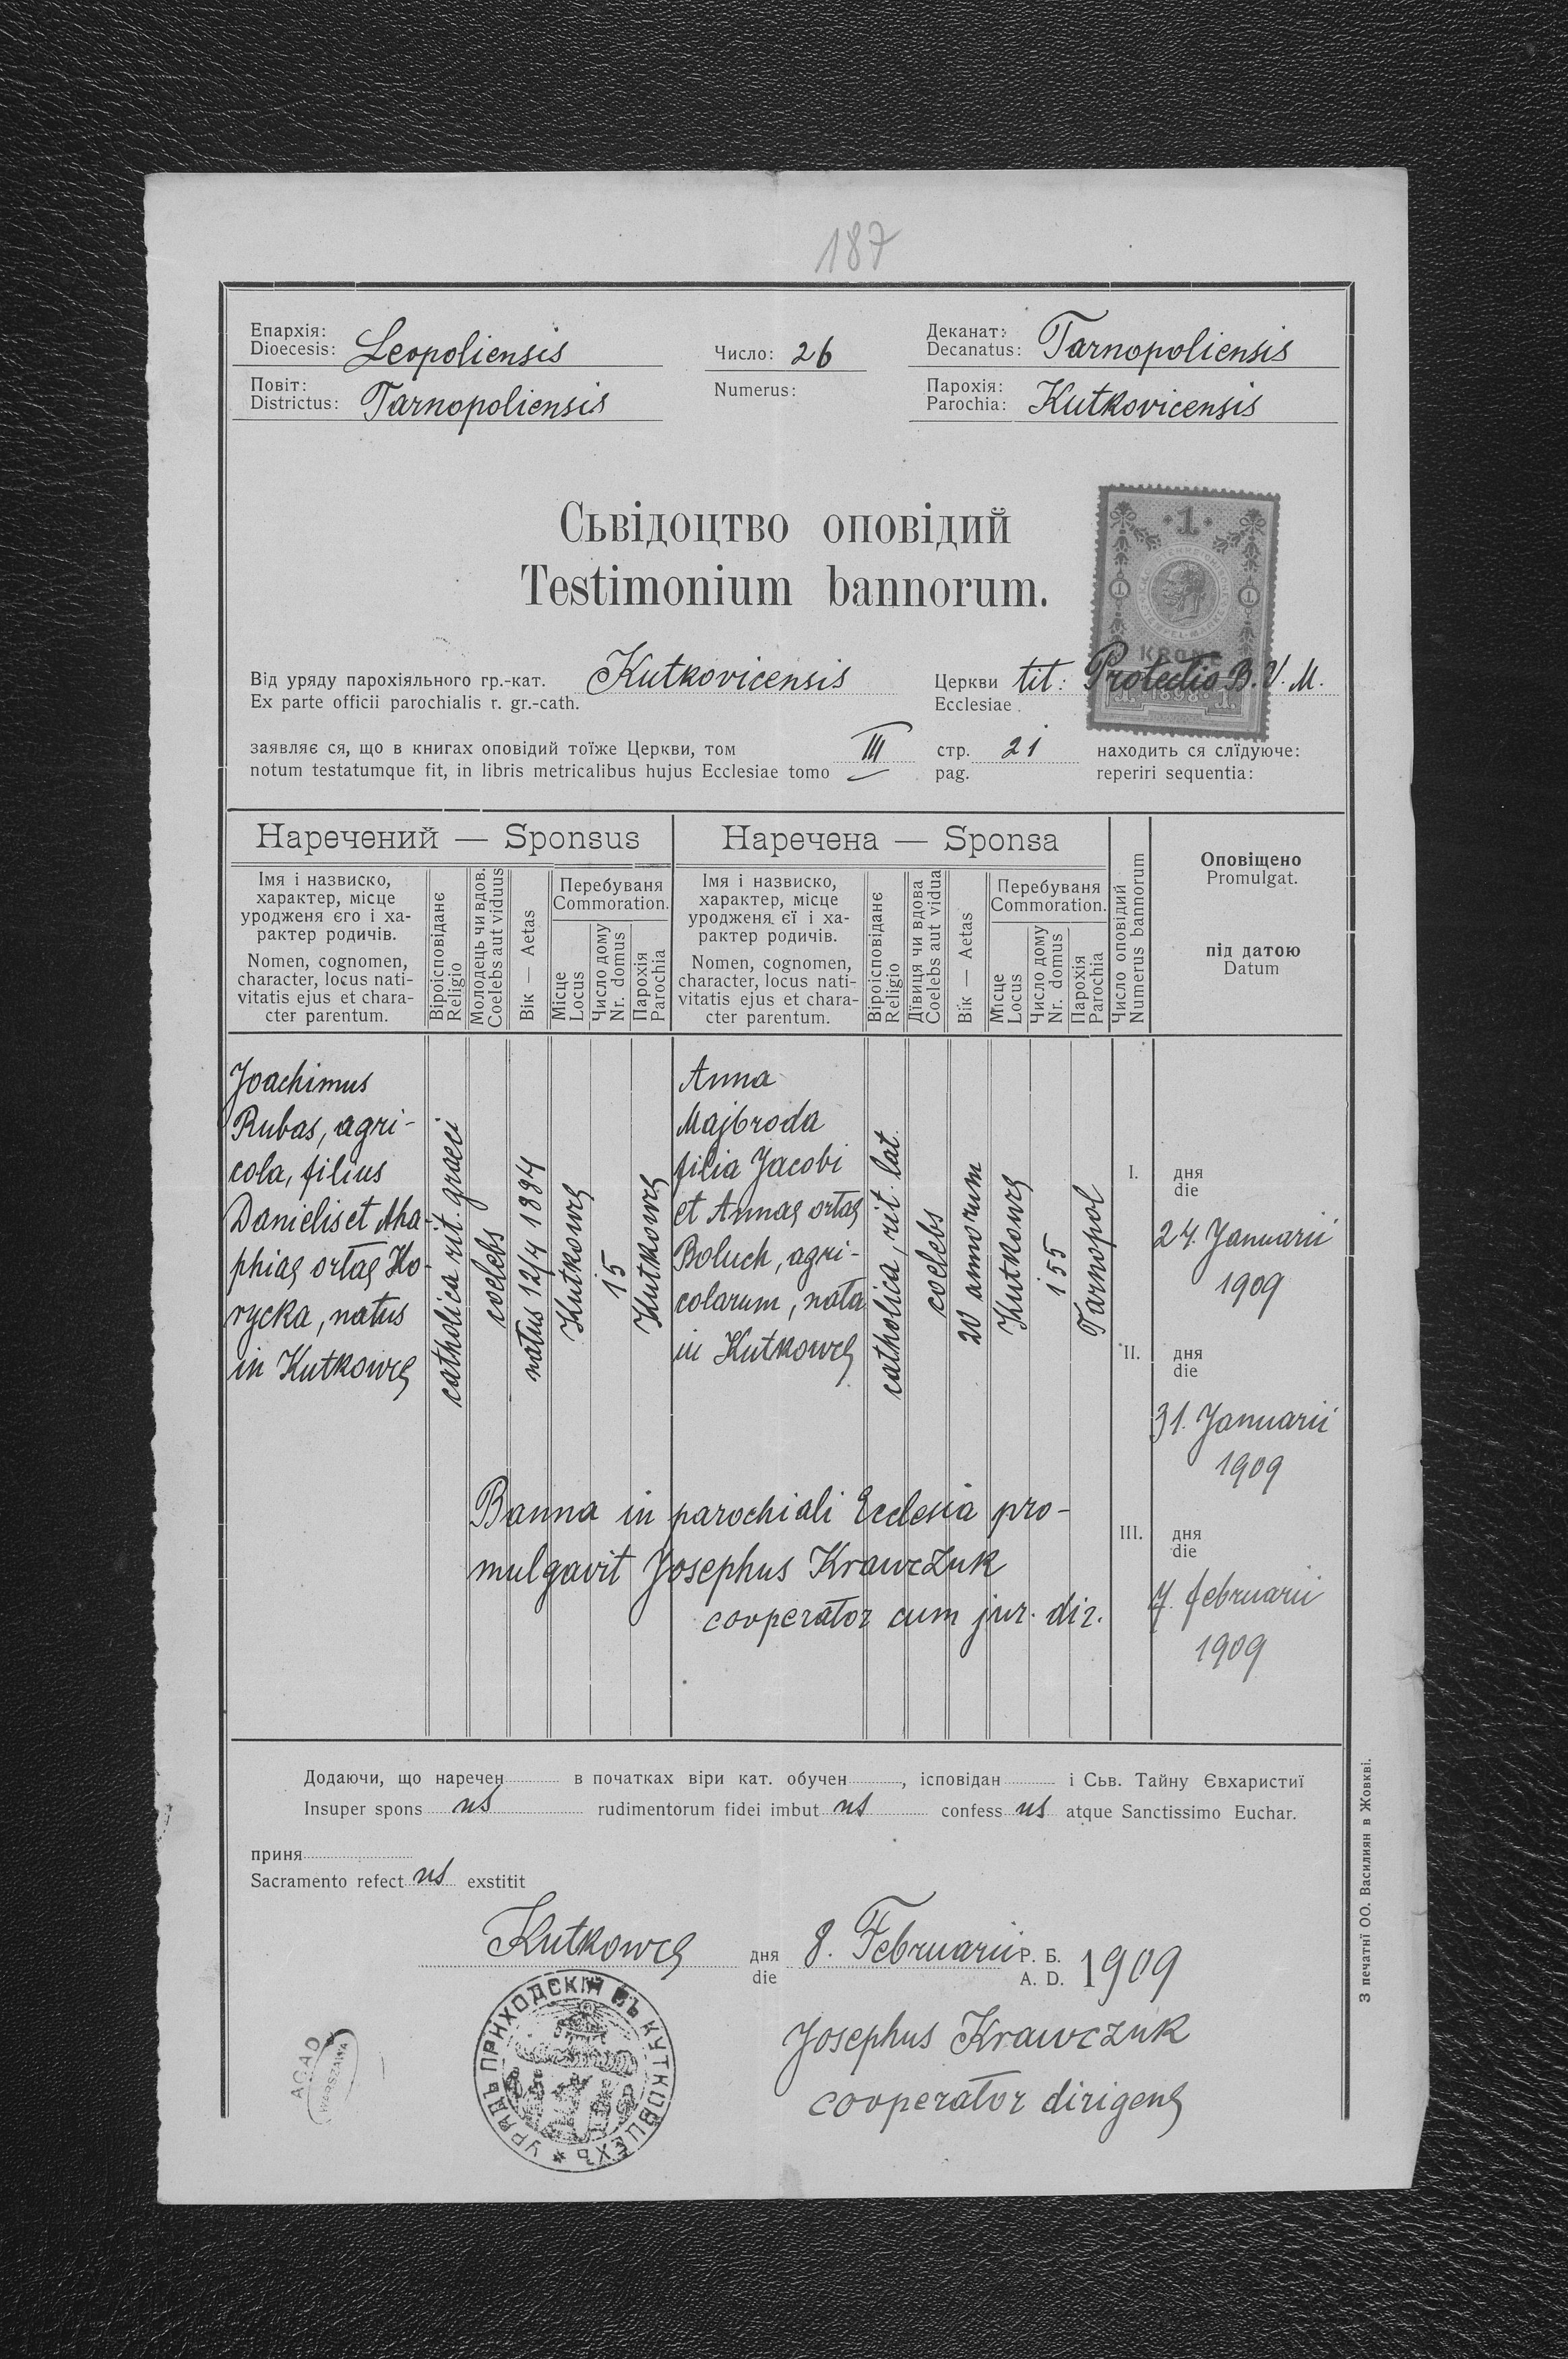 187
Епархія:
Dioecesis: Leopoliensis
Число: 26
Numerus:
Деканат:
Decanatus: Tarnopoliensis
Повіт:
Districtus: Tarnopoliensis
Парохія:
Parochia: Kutkovicensis
Сьвідоцтво оповідий
Testimonium bannorum.
1
KRONE
1898
Від уряду парохіяльного гр.-кат. Kutkovicensis Церкви tit: Protectio B. V. M.
Ex parte officii parochialis r. gr.-cath. Ecclesiae
заявляє ся, що в книгах оповідий тоїже Церкви, том III стр. 21 находить ся слїдуюче:
notum testatumque fit, in libris metricalibus hujus Ecclesiae tomo pag. reperiri sequentia:
Наречений — Sponsus
Імя і назвиско,
характер, місце
уродженя єго і ха-
рактер родичів.
Nomen, cognomen,
character, locus nati-
vitatis ejus et chara-
cter parentum.
Віроісповіданє
Religio
Молодець чи вдов.
Coelebs aut viduus
Вік — Aetas
Перебуваня
Commoration.
Місце
Locus
Число дому
Nr. domus
Парохія
Parochia
Наречена — Sponsa
Імя і назвиско,
характер, місце
уродженя єї і ха-
рактер родичів.
Nomen, cognomen,
character, locus nati-
vitatis ejus et chara-
cter parentum.
Віроісповіданє
Religio
Дївиця чи вдова
Coelebs aut vidua
Вік — Aetas
Перебуваня
Commoration.
Місце
Locus
Число дому
Nr. domus
Парохія
Parochia
Число оповідий
Numerus bannorum
Оповіщено
Promulgat.
під датою
Datum
Joachimus
Rubas, agri-
cola, filius
Danielis et Aha-
phiae ortae Ho-
rycka, natus
in Kutkowce
catholica rit. graeci
coelebs
natus 12/4 1884
Kutkowce
15
Kutkowce
Anna
Majbroda
filia Jacobi
et Annae ortae
Boluch, agri-
colarum, nata
in Kutkowce
catholica, rit. lat.
coelebs
20 annorum
Kutkowce
155
Tarnopol
I. дня
die
24. Januarii
1909
II. дня
die
31. Januarii
1909
III. дня
die
7. februarii
1909
Banna in parochiali Ecclesia pro-
mulgavit Josephus Krawczuk
cooperator cum jur. dir.
Додаючи, що наречен в початках віри кат. обучен, ісповідан і Сьв. Тайну Євхаристиї
Insuper spons us rudimentorum fidei imbut us confess us atque Sanctissimo Euchar.
приня
Sacramento refect us exstitit
Kutkowce дня 8. Februarii Р. Б. 1909
die A. D.
Josephus Krawczuk
cooperator dirigens
УРЯДЪ ПРИХОДСКІЙ ВЪ КУТКОВЦЕХЪ
AGAD
WARSZAWA
З печатні ОО. Василиян в Жовкві.